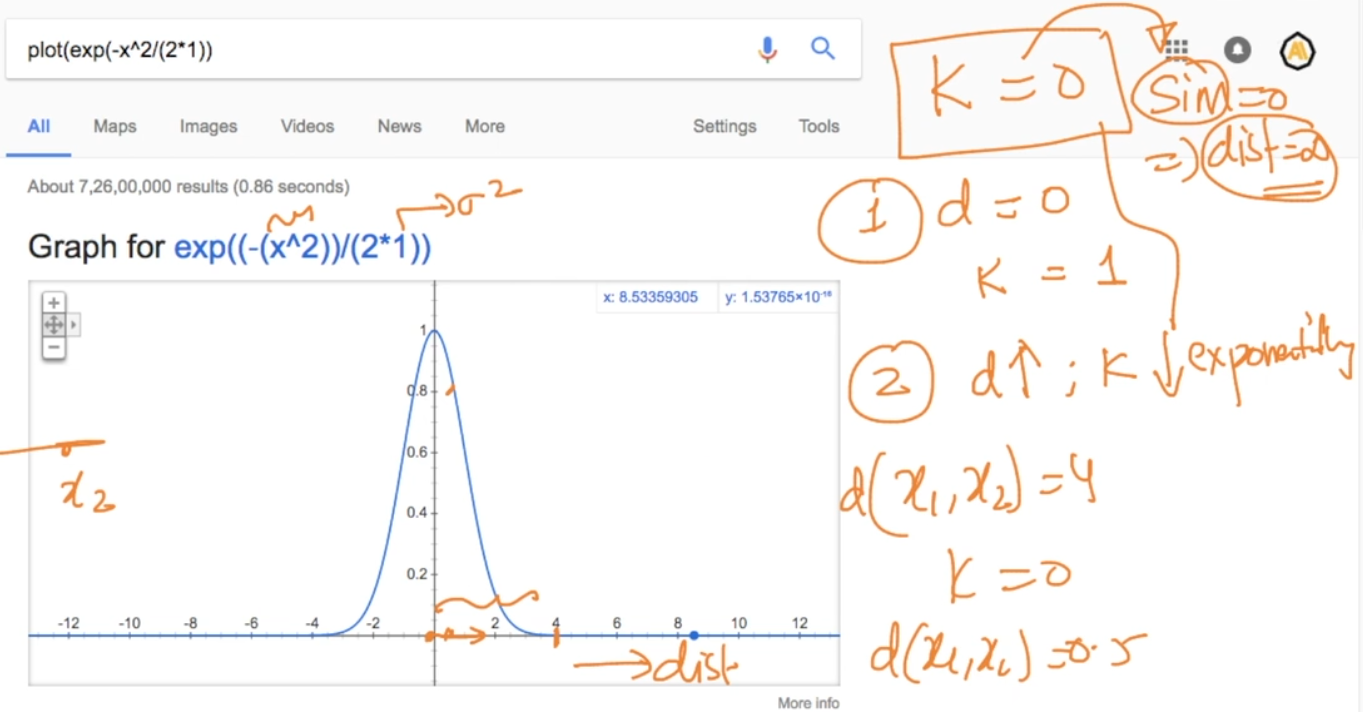 plot(exp(-x^2/(2*1))
All Maps Images Videos News More Settings Tools
About 7,26,00,000 results (0.86 seconds)
σ²
Graph for exp((-(x^2))/(2*1))
x: 8.53359305 y: 1.53765×10⁻¹⁶
1
0.8
0.6
0.4
0.2
-12 -10 -8 -6 -4 -2 2 4 6 8 10 12
x₂
dist
More info
K = 0
Sim=0
⇒) dist=∞
1 d = 0
K = 1
2 d↑ ; K ↓ exponentially
d(x₁,x₂)=4
K = 0
d(x₁,x₂)=0.5